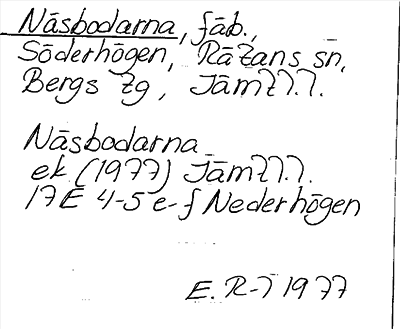 Näsbodarna, fäb.,
Söderhögen, Rätans sn,
Bergs tg, Jämtl. l.
Näsbodarna
ek (1977) Jämtl. l.
17E 4-5 e-f Nederhögen
E. R-l 1977